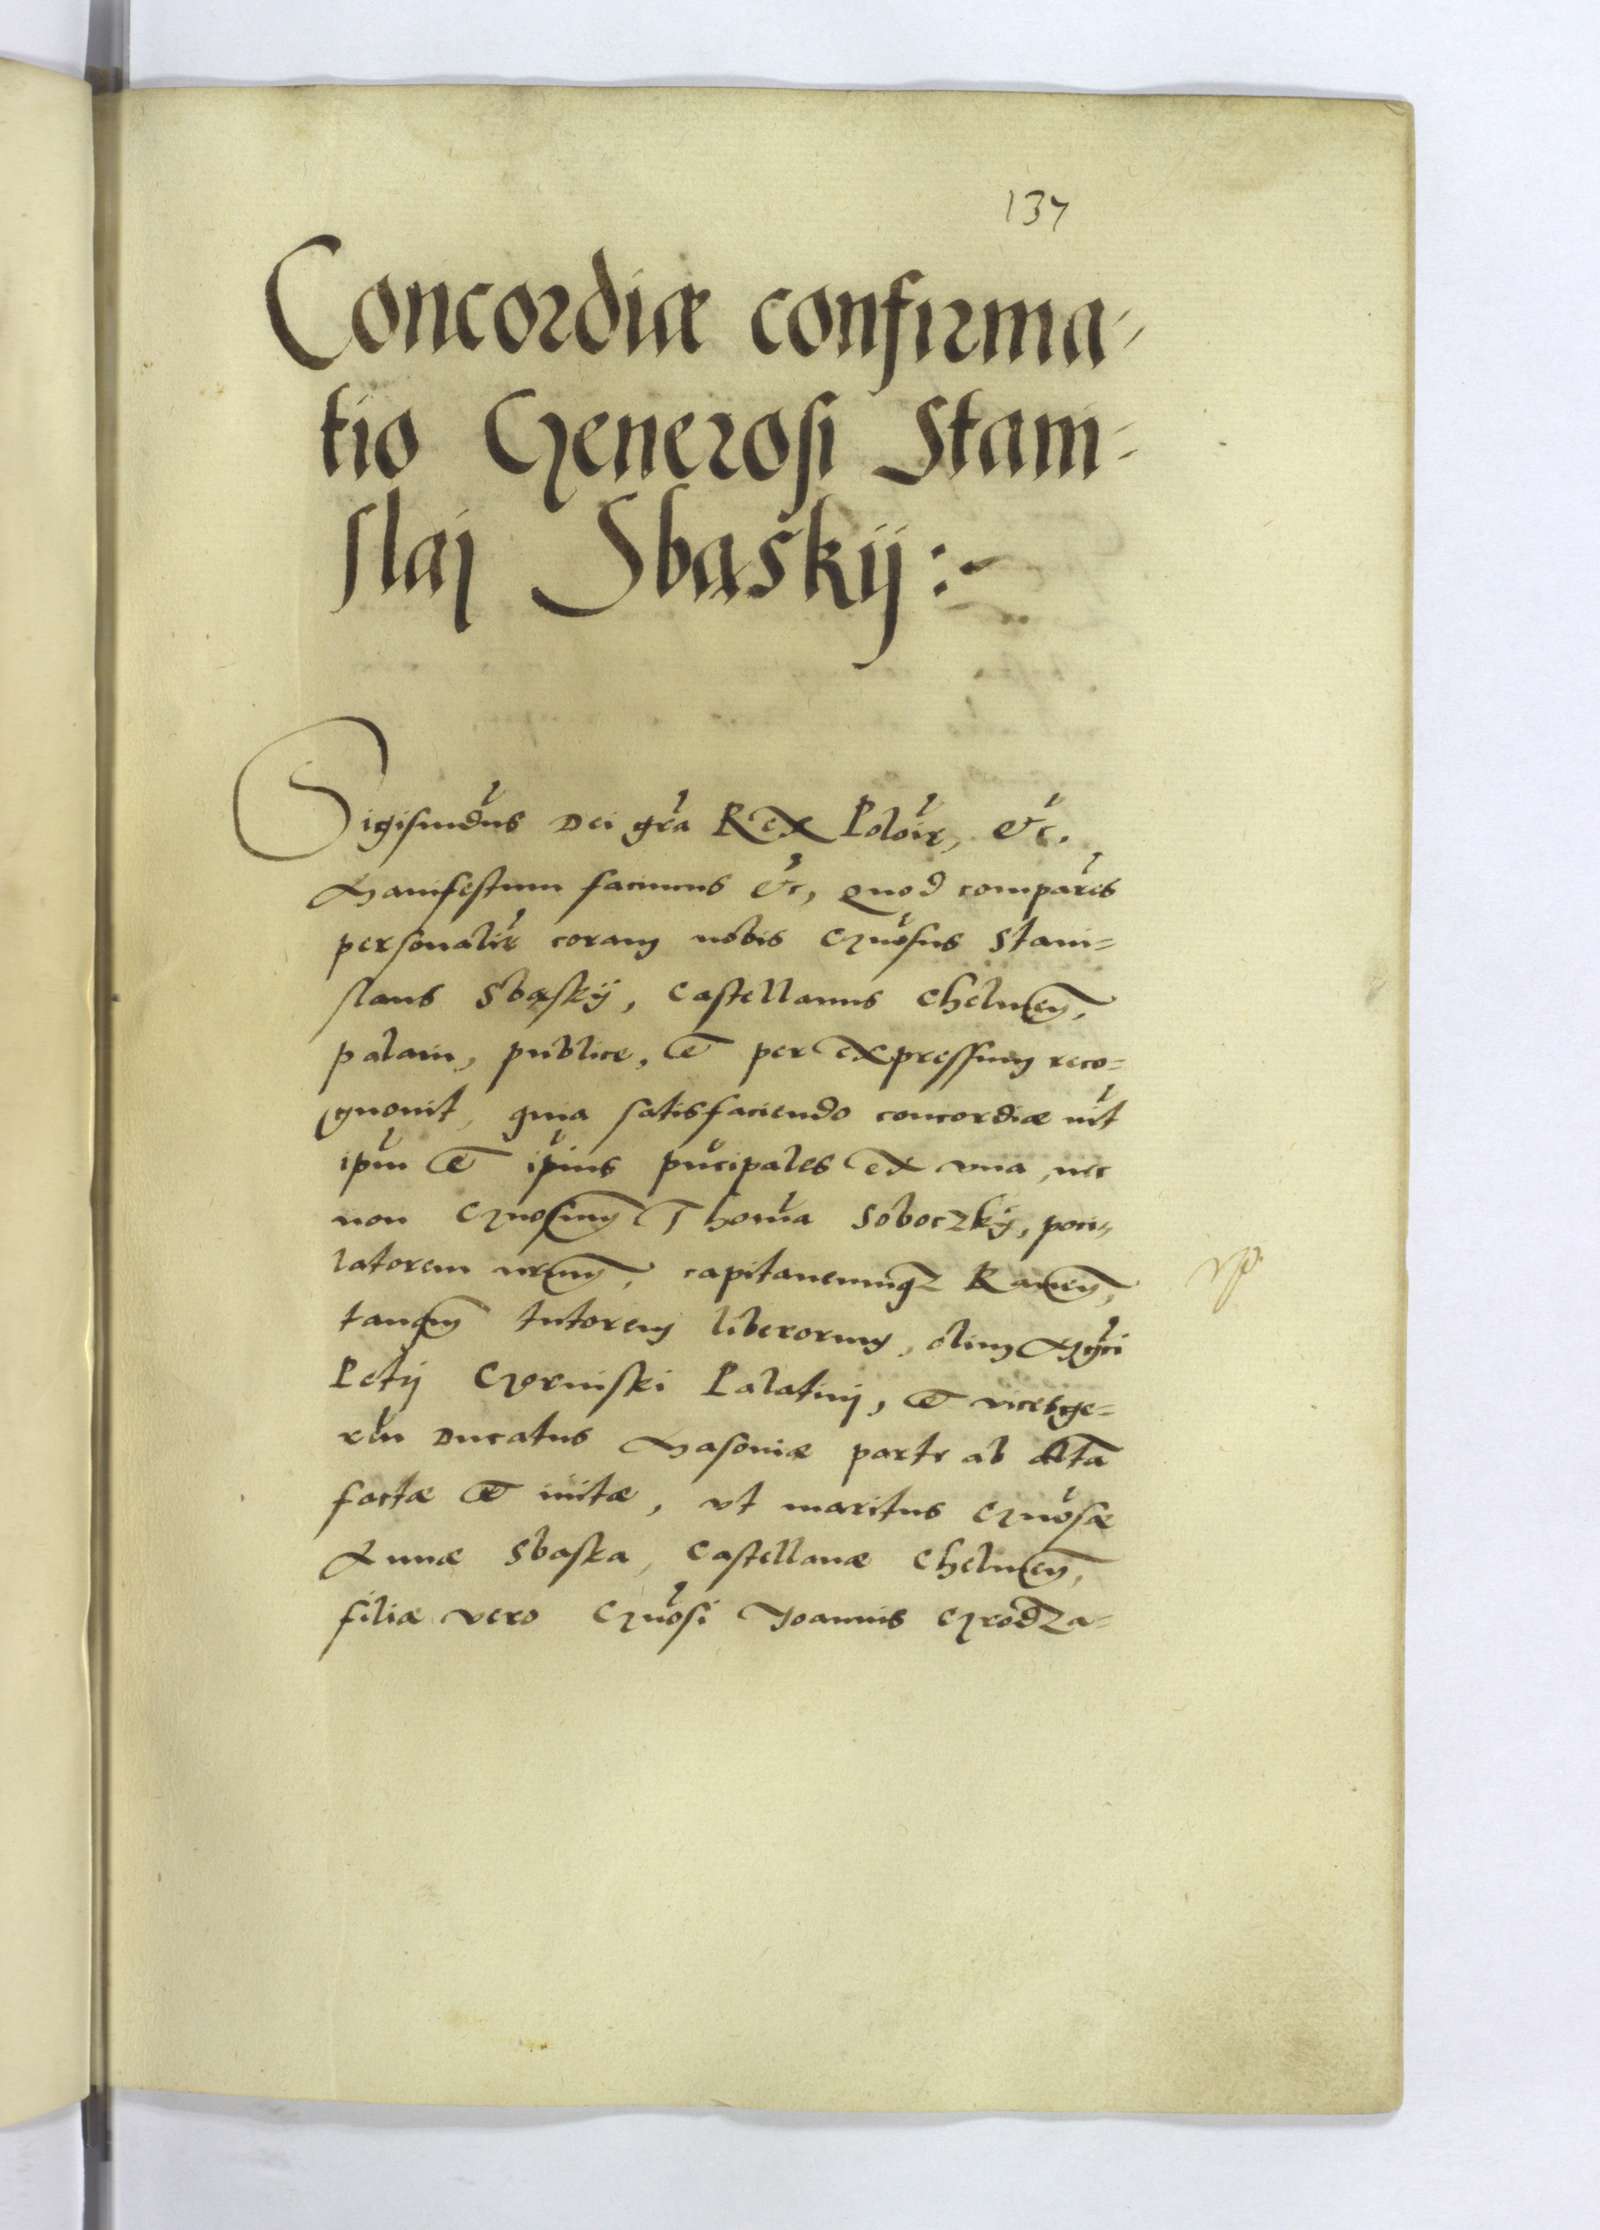 137
Concordiæ confirma-
tio Generosi Stani-
slaj Sbąskij :~
Sigismdus Dei gra Rex Polon, &c.
Manifestum facimus &c, quod compares
personalir coram nobis Gnosus Stani-
slaus Sbąskij, Castellanus Chelmeñ,
palam, publice, et per expressum reco-
gnovit, quia satisfaciendo concordiæ int
ipm et ipius pncipales ex vna, nec
non Gnosum Thoma Soboczkij, poci-
latorem nrum, capitaneumqz Rameñ,
tanqm tutorem liberorum, olim Mgci
Petij Gorinski Palatinj, et vicesge-
ren Ducatus Masoviæ parte ab alta
factæ et initæ, vt maritus Gnosæ
Annæ Sbaska, Castellanæ Chelmeñ,
filiæ vero Gnosi Joannis Grodza-